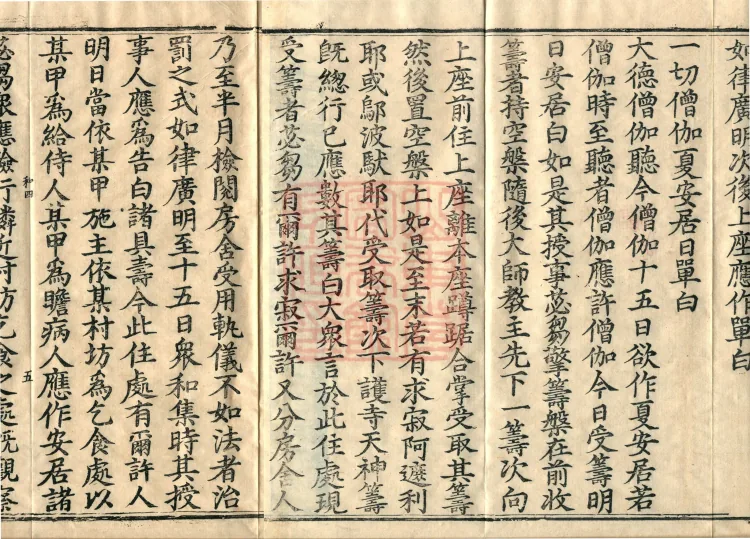 如律廣明次後上座應作單白
一切僧伽夏安居日單白
大德僧伽聽今僧伽十五日欲作夏安居若
僧伽時至聽者僧伽應許僧伽今日受籌明
日安居白如是其授事苾芻擎籌槃在前收
籌者持空槃隨後大師教主先下一籌次向
上座前住上座離本座蹲踞合掌受取其籌
然後置空槃上如是至末若有求寂阿遮利
耶或鄔波馱耶代受取籌次下護寺天神籌
既總行已應數其籌白大衆言於此住處現
受籌者苾芻有爾許求寂爾許又分房舍人
乃至半月檢閱房舍受用軌儀不如法者治
罰之式如律廣明至十五日衆和集時其授
事人應爲告白諸具壽今此住處有爾許人
明日當依某甲施主依某村坊爲乞食處以
某甲爲給侍人某甲爲瞻病人應作安居諸
和四
五
苾芻衆應檢行隣近村坊乞食之處既觀察